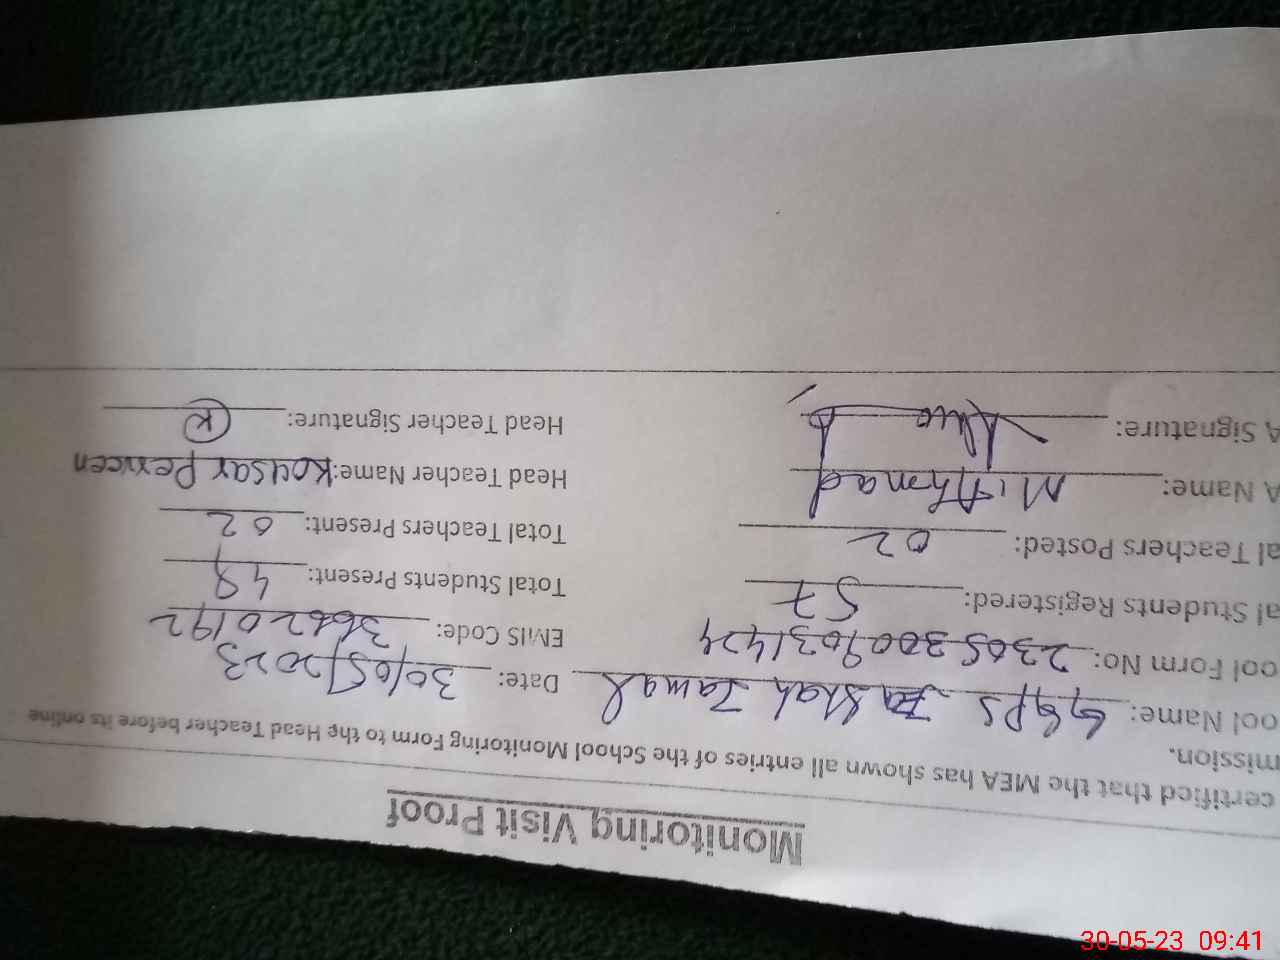 Monitoring Visit Proof
certified that the MEA has shown all entries of the School Monitoring Form to the Head Teacher before its online
mission.
ool Name: GGPS Jashah Jamal Date: 30/05/2023
ool Form No: 23053009031424 EMIS Code: 36620192
al Students Registered: 57 Total Students Present: 48
al Teachers Posted: 02 Total Teachers Present: 02
A Name: M. Ahmad Head Teacher Name: Kousar Perveen
A Signature: Head Teacher Signature: K
30-05-23 09:41